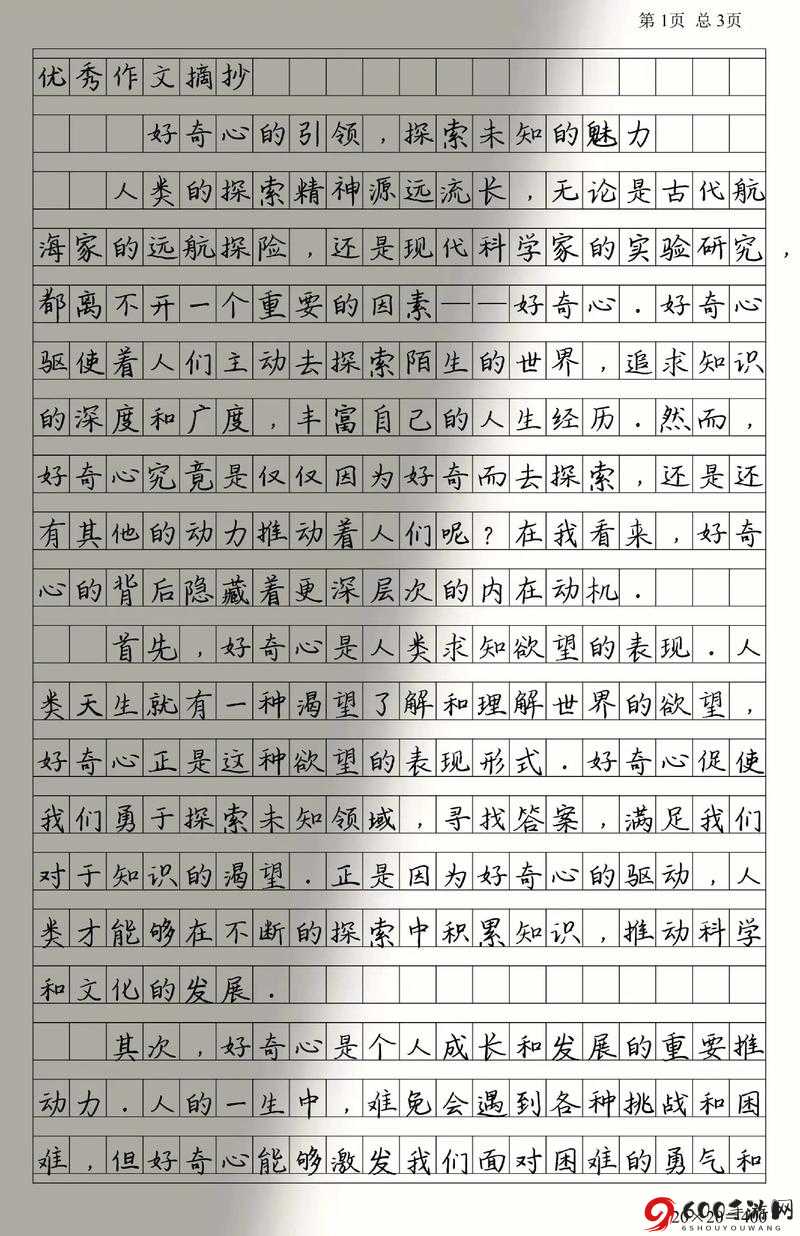 第1页 总3页
优秀作文摘抄
好奇心的引领，探索未知的魅力
人类的探索精神源远流长，无论是古代航
海家的远航探险，还是现代科学家的实验研究，
都离不开一个重要的因素——好奇心．好奇心
驱使着人们主动去探索陌生的世界，追求知识
的深度和广度，丰富自己的人生经历．然而，
好奇心究竟是仅仅因为好奇而去探索，还是还
有其他的动力推动着人们呢？在我看来，好奇
心的背后隐藏着更深层次的内在动机．
首先，好奇心是人类求知欲望的表现．人
类天生就有一种渴望了解和理解世界的欲望，
好奇心正是这种欲望的表现形式．好奇心促使
我们勇于探索未知领域，寻找答案，满足我们
对于知识的渴望．正是因为好奇心的驱动，人
类才能够在不断的探索中积累知识，推动科学
和文化的发展．
其次，好奇心是个人成长和发展的重要推
动力．人的一生中，难免会遇到各种挑战和困
难，但好奇心能够激发我们面对困难的勇气和
20×20=400
600手游网
6SHOUYOUWANG